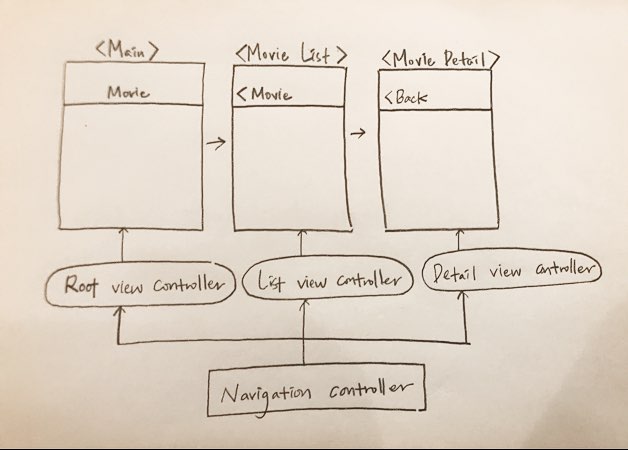 <Main>
<Movie List>
<Movie Detail>
Movie
<Movie
<Back
Root view controller
List view controller
Detail view controller
Navigation controller